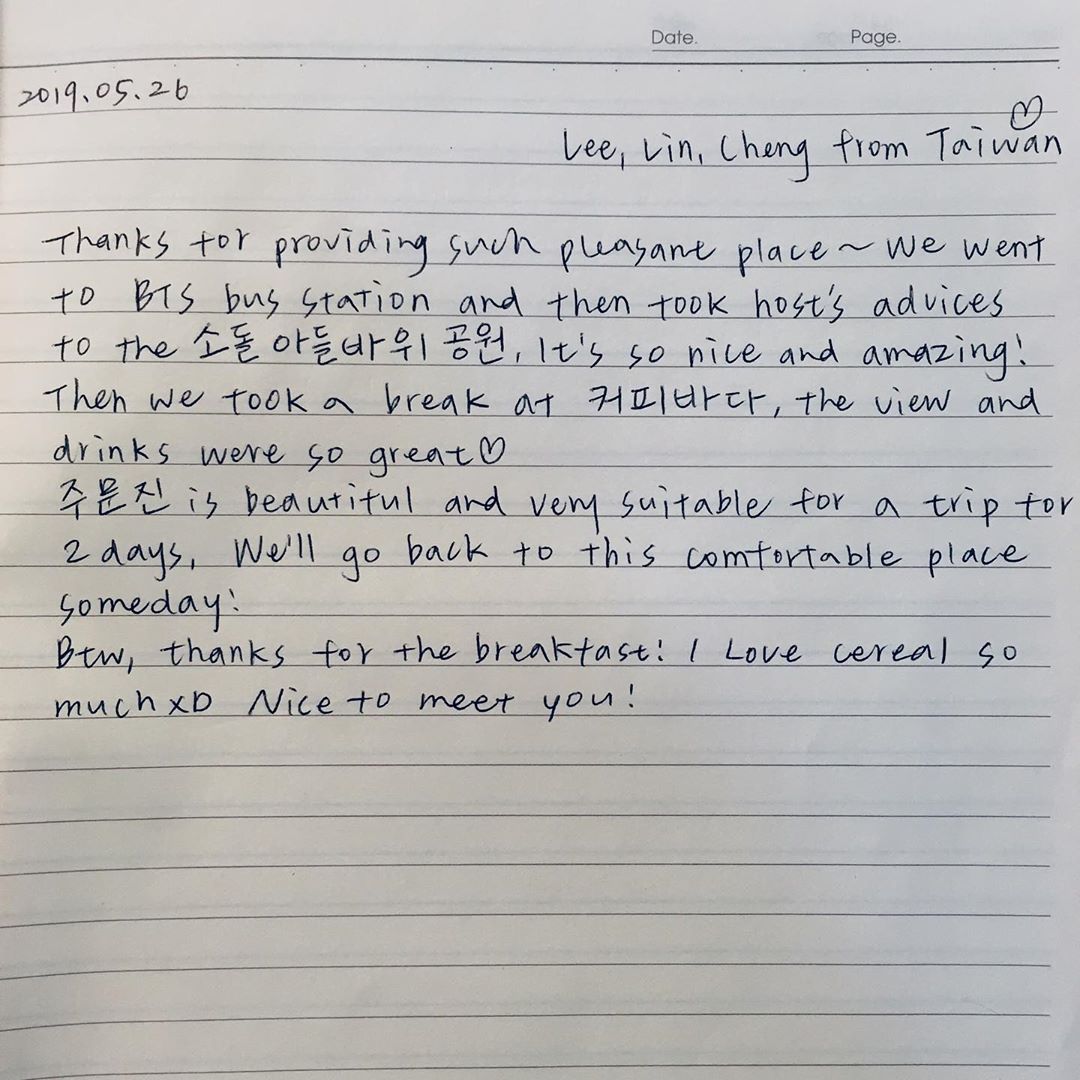 Date. Page.
2019.05.26
Lee, Lin, Cheng from Taiwan ♡
Thanks for providing such pleasant place~ We went
to BTS bus station and then took host's advices
to the 소돌 아들바위 공원, It's so nice and amazing!
Then we took a break at 커피바다, the view and
drinks were so great♡
주문진 is beautiful and very suitable for a trip for
2 days, We'll go back to this comfortable place
someday!
Btw, thanks for the breakfast! I Love cereal so
much xD Nice to meet you!